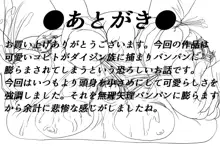 ●あとがき●
お買い上げありがとうございます。今回の作品は
可愛いコビトがダイジン族に捕まりパンパンに
膨らまされてしまうという恐ろしいお話です。
今回はいつもより頭身を小さめにして可愛らしさを
強調しました。それを無理矢理パンパンに膨らます
から余計に悲惨な感じがしましたね。